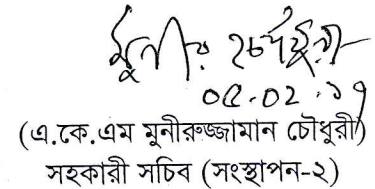 মুনীর চৌধুরী
০৫.০২.১৭
(এ.কে.এম মুনীরুজ্জামান চৌধুরী)
সহকারী সচিব (সংস্থাপন-২)